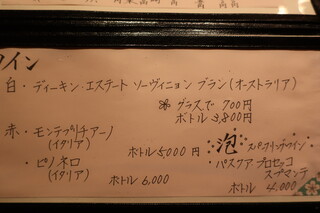 ワイン
白・ディーキン・エステート ソーヴィニョン ブラン(オーストラリア)
※グラスで 700円
ボトル 3,800円
赤・モンテプルチアーノ
(イタリア)
ボトル 5000円
・ピノネロ
(イタリア)
ボトル 6,000
泡 スパークリングワイン
パスクア プロセッコ
スプマンテ
ボトル 4,000